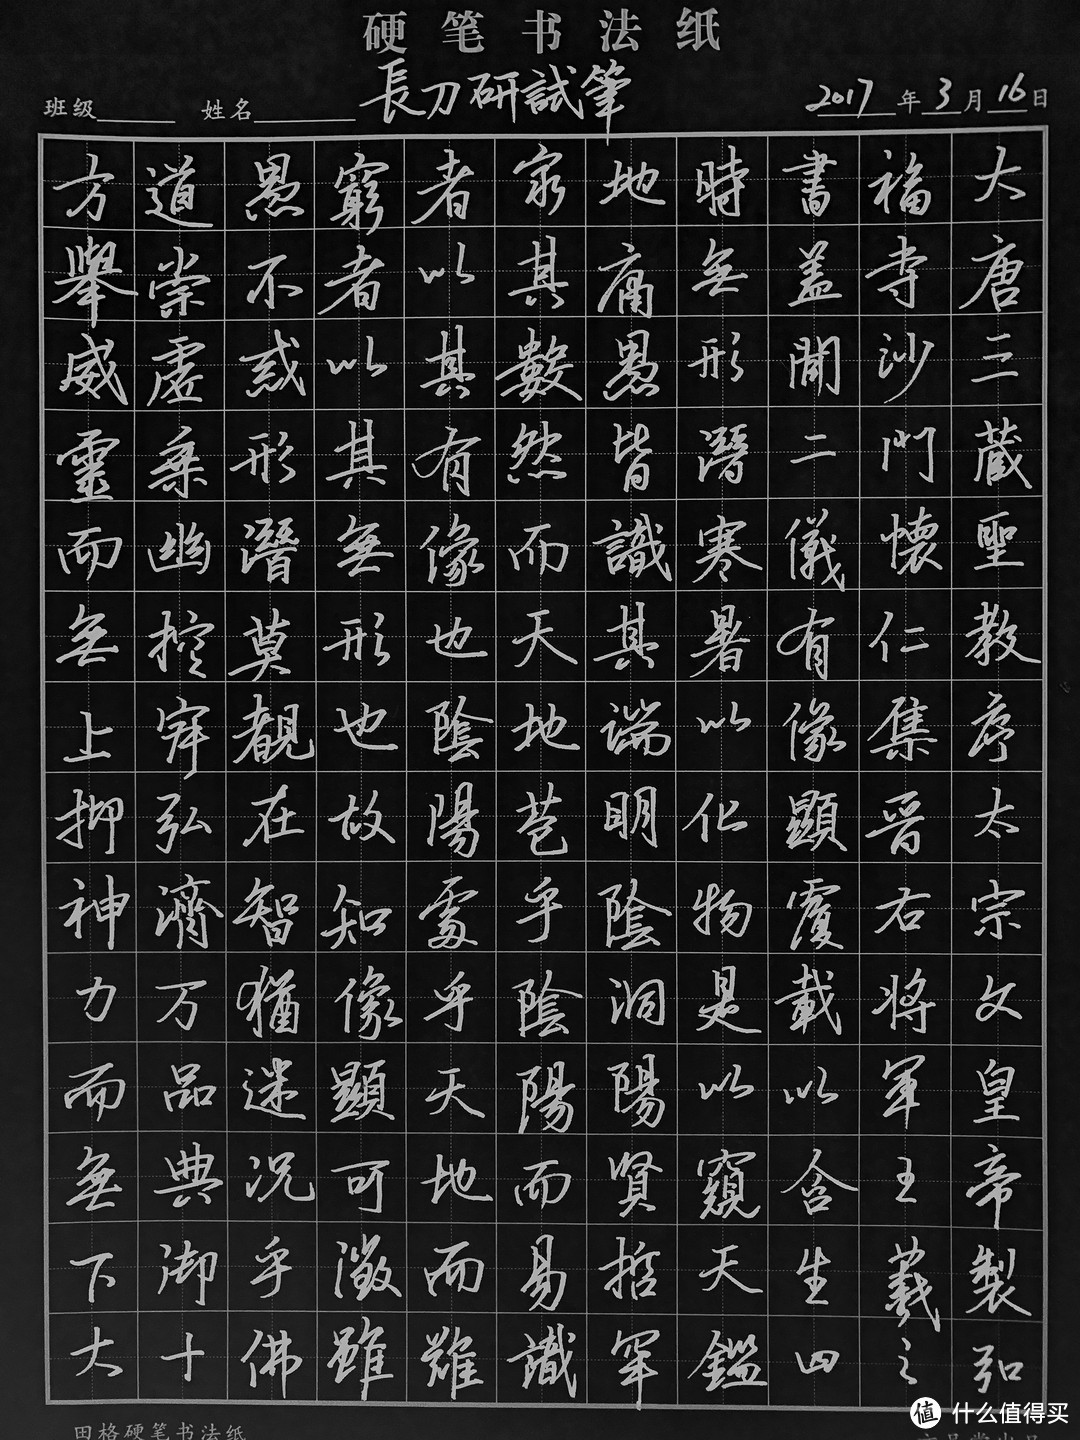 硬笔书法纸
班级 姓名 長刀研試筆 2017年3月16日
大唐三蔵聖教序太宗文皇帝製弘
福寺沙門懐仁集晉右将軍王羲之
書蓋聞二儀有像顯覆載以含生四
時無形潛寒暑以化物是以窺天鑑
地庸愚皆識其端明陰洞陽賢哲罕
穷其數然而天地苞乎陰陽而易識
者以其有像也陰陽處乎天地而難
窮者以其無形也故知像顯可徵雖
愚不惑形潛莫覩在智猶迷况乎佛
道崇虛乗幽控寂弘濟万品典御十
方舉威靈而無上抑神力而無下大
田格硬笔书法纸
值 什么值得买